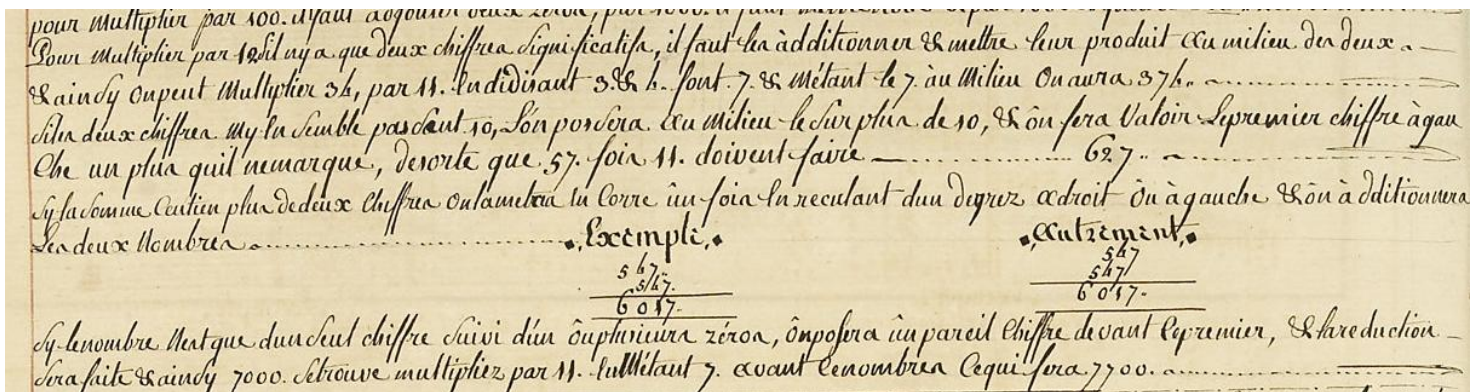 pour multiplier par 100. il faut adjouster deux zéros, par 1000. il faut
Pour Multiplier par 11. sil ny a que deux chiffres significatifs, il faut les àdditionner & mettre leur produit au milieu des deux
& ainsy on peut Multyplier 34, par 11. En disant 3. & 4. font 7. & Métant le 7. àu Milieu on aura 374.
Si les deux chiffres mis Ensemble passent 10, L'on possera au milieu le surplus de 10, & ôn fera Valoir Le premier chiffre à gau
Che un plus quil ne marque, de sorte que 57. fois 11. doivent faire 627.
Sy la somme Contien plus de deux Chiffres on la metra En Corre ûn fois En reculant dun degrez a droit ôu à gauche & ôn àdditionnera
Les deux Nombres Exemple Autrement
547. 547
547. 547
6017. 6017.
Sy le nombre Nest que dun seul chiffre suivi d'un ôu plusieurs zéros, ôn posera ûn pareil Chiffre devant Le premier, & la reduction
sera faite & ainsy 7000. se trouve multipliez par 11. En Métant 7. avant Le nombres Ce qui fera 7700.